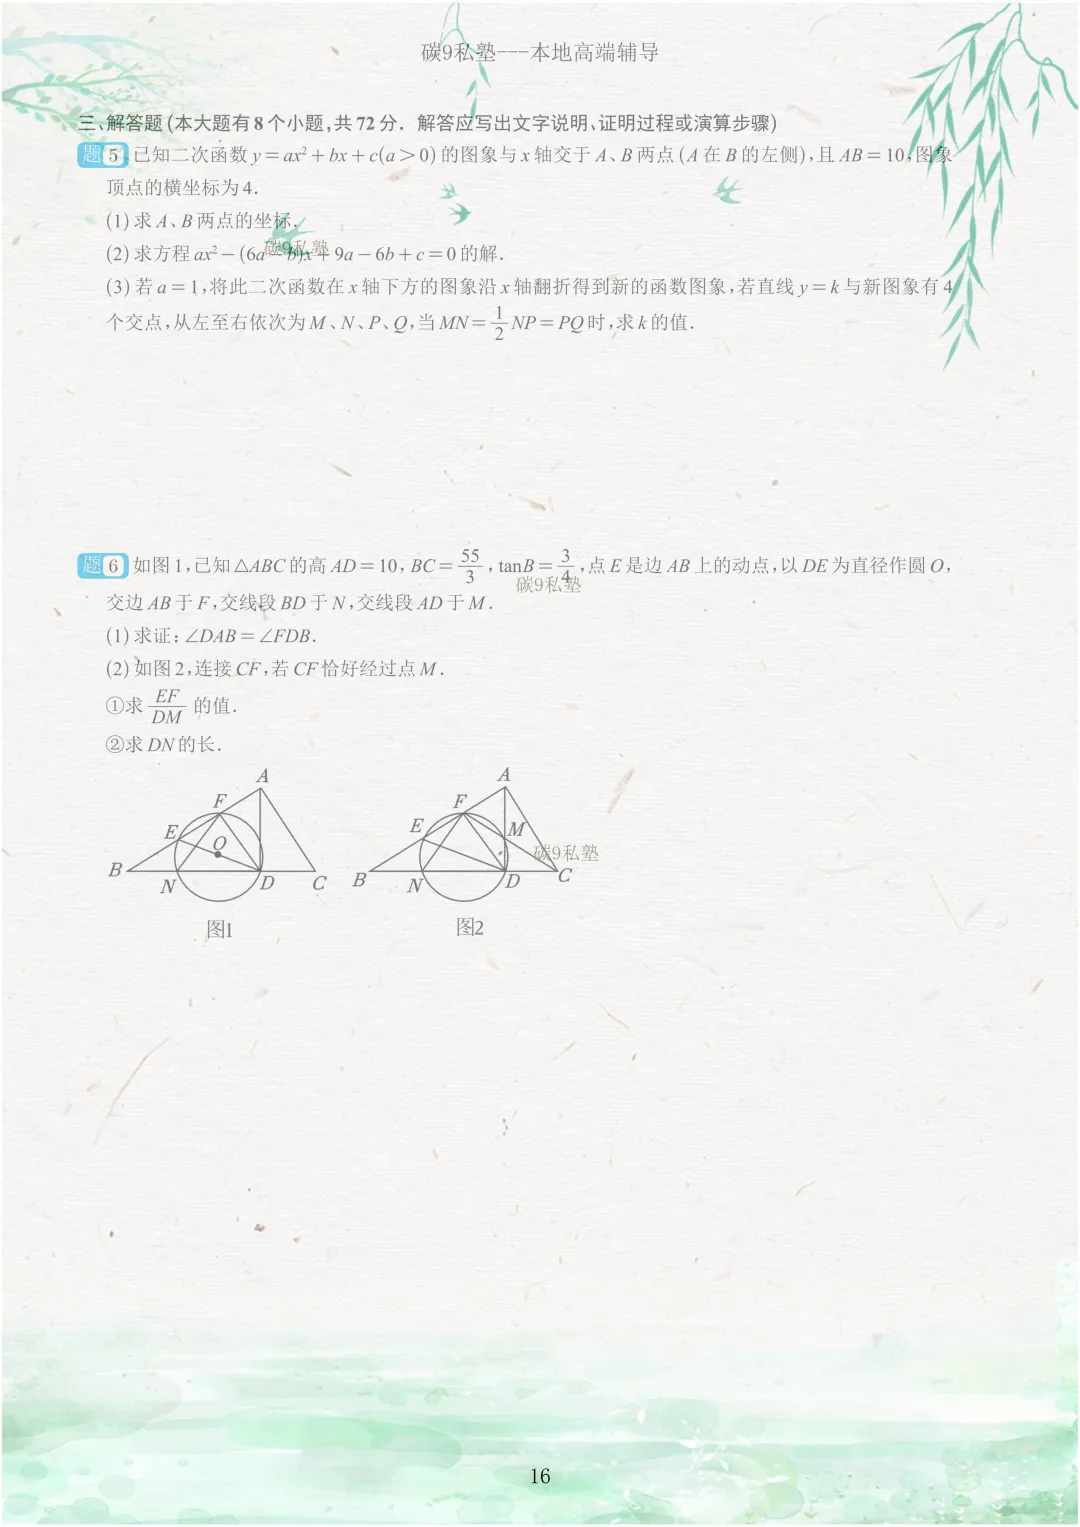 碳9私塾---本地高端辅导
三、解答题(本大题有8个小题,共72分．解答应写出文字说明、证明过程或演算步骤)
题5 已知二次函数 y=ax²+bx+c(a>0) 的图象与 x 轴交于 A、B 两点 (A 在 B 的左侧),且 AB=10,图象
顶点的横坐标为4．
(1) 求 A、B 两点的坐标．
(2) 求方程 ax²-(6a-b)x+9a-6b+c=0 的解．
碳9私塾
(3) 若 a=1,将此二次函数在 x 轴下方的图象沿 x 轴翻折得到新的函数图象,若直线 y=k 与新图象有 4
个交点,从左至右依次为 M、N、P、Q,当 MN=1/2 NP=PQ 时,求 k 的值．
题6 如图1,已知△ABC 的高 AD=10, BC=55/3, tanB=3/4,点 E 是边 AB 上的动点,以 DE 为直径作圆 O,
碳9私塾
交边 AB 于 F,交线段 BD 于 N,交线段 AD 于 M．
(1) 求证:∠DAB=∠FDB．
(2) 如图2,连接 CF,若 CF 恰好经过点 M．
①求 EF/DM 的值．
②求 DN 的长．
A
F
E
O
B
N
D
C
图1
A
F
E
M
碳9私塾
B
N
D
C
图2
16